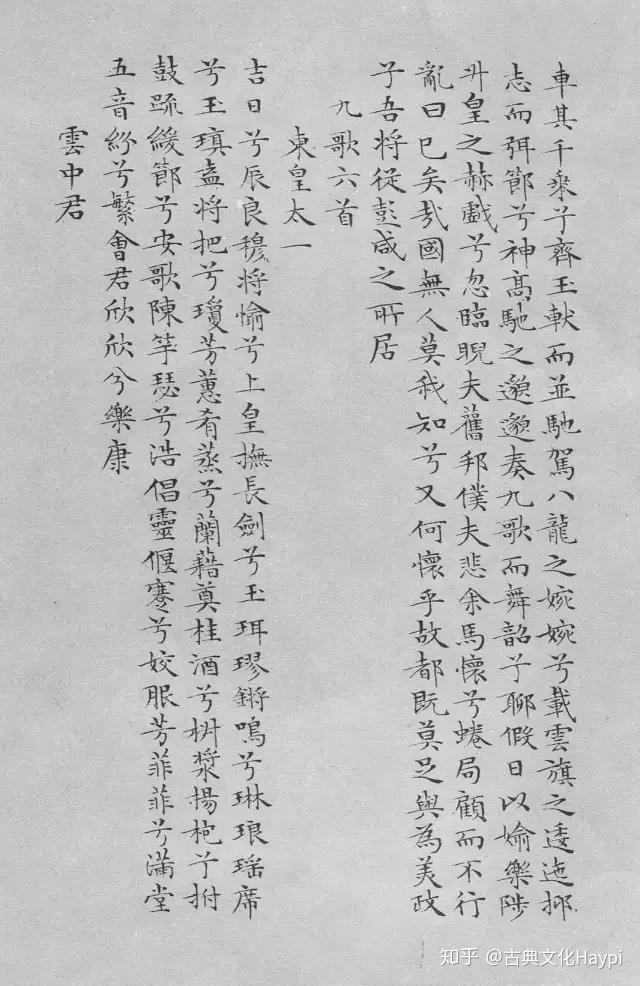 車其千乗兮齊玉軑而並馳駕八龍之婉婉兮載雲旗之逶迤抑
志而弭節兮神髙馳之邈邈奏九歌而舞韶兮聊假日以婾樂陟
升皇之赫戲兮忽臨睨夫舊邦僕夫悲余馬懷兮蜷局顧而不行
亂曰已矣哉國無人莫我知兮又何懷乎故都既莫足與為美政
兮吾将從彭咸之所居
九歌六首
東皇太一
吉日兮辰良穆将愉兮上皇撫長劍兮玉珥璆鏘鳴兮琳琅瑶席
兮玉瑱盍将把兮瓊芳蕙肴蒸兮蘭藉奠桂酒兮椒漿揚枹兮拊
鼓䟽緩節兮安歌陳竽瑟兮浩倡靈偃蹇兮姣服芳菲菲兮滿堂
五音紛兮繁會君欣欣兮樂康
雲中君
知乎 @古典文化Haypi